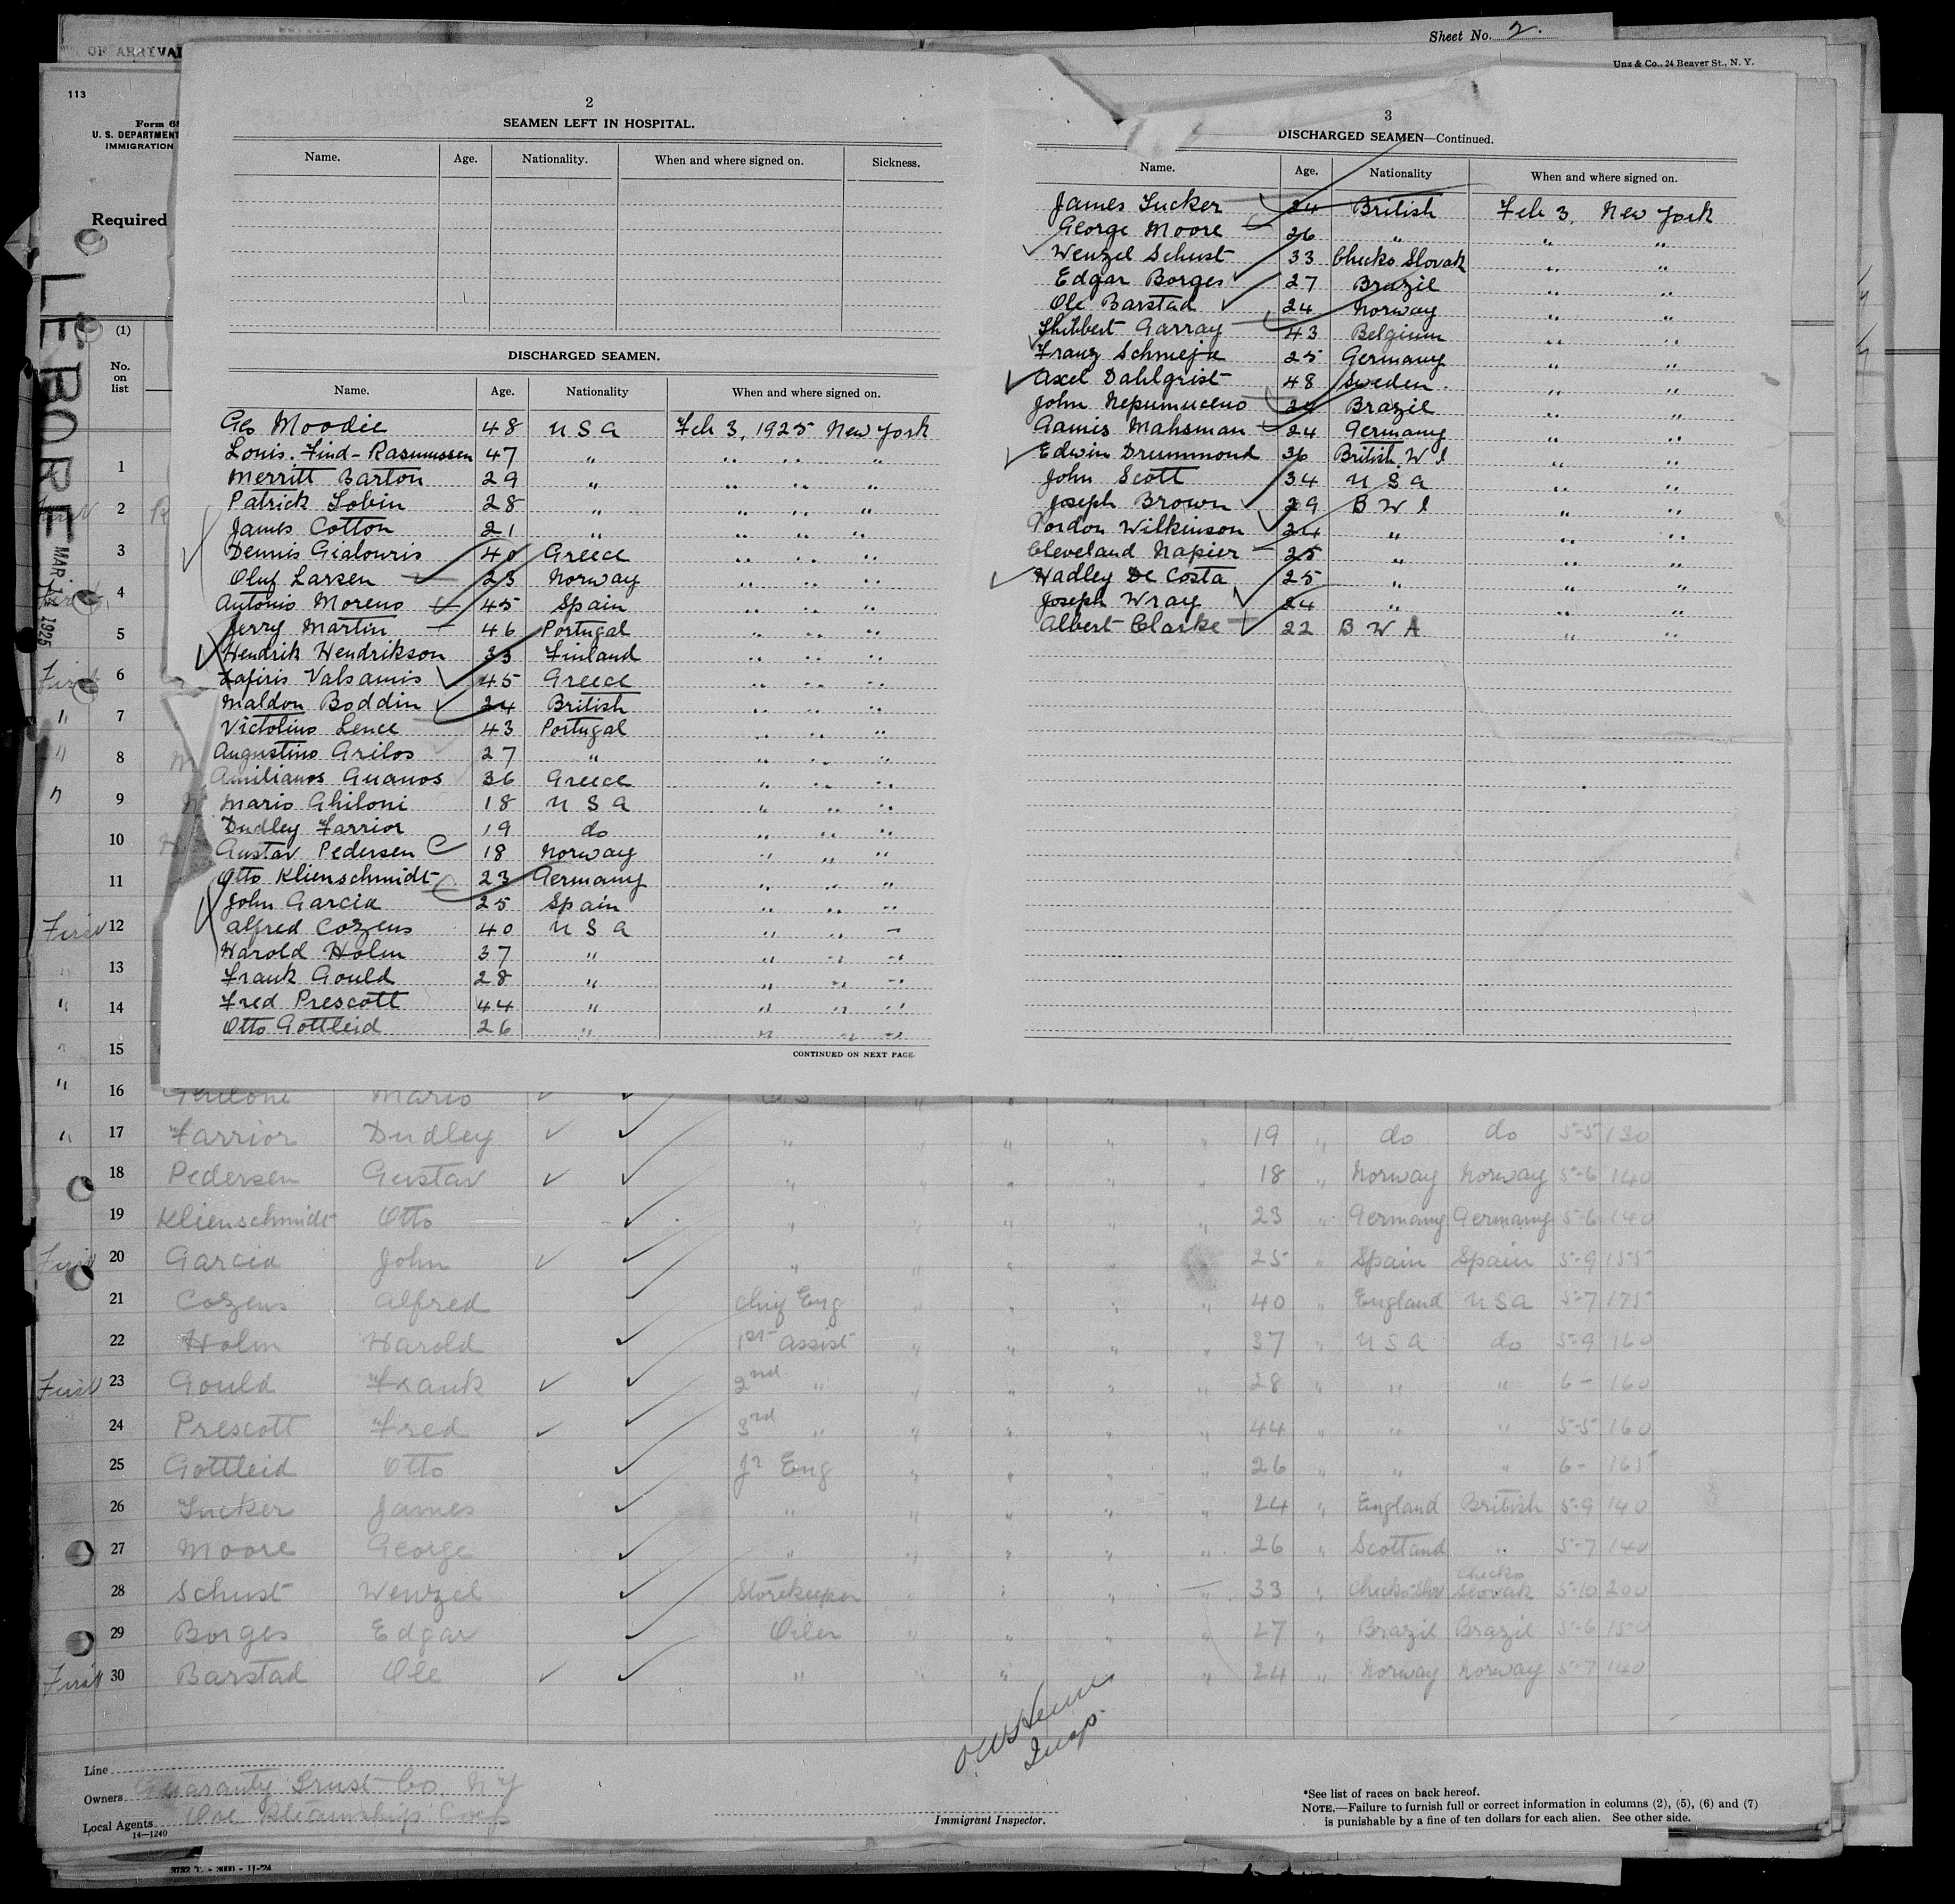 Sheet No. 2.
Unz & Co., 24 Beaver St., N. Y.
OF ARRIVAL
113
U. S. DEPARTMENT
IMMIGRATION
Required
LEBORE
MAR 14 1925
(1)
No. on list
2
SEAMEN LEFT IN HOSPITAL.
Name. Age. Nationality. When and where signed on. Sickness.
DISCHARGED SEAMEN.
Name. Age. Nationality When and where signed on.
Geo Moodie 48 U S A Feb 3, 1925 New York
Louis. Find-Rasmussen 47 " " " "
Merritt Barton 29 " " " "
Patrick Tobin 28 " " " "
James Cotton 21 " " " "
Dennis Gialouris 40 Greece " " "
Oluf Larsen 23 Norway " " "
Antonio Moreno 45 Spain " " "
Jerry Martin 46 Portugal " " "
Hendrik Hendrikson 33 Finland " " "
Zafiris Valsamis 45 Greece " " "
Maldon Boddin 24 British " " "
Victolino Lence 43 Portugal " " "
Augustino Grilos 27 " " " "
Amilianos Guanos 36 Greece " " "
Mario Ghiloni 18 U S A " " "
Dudley Farrior 19 do " " "
Gustav Pedersen 18 Norway " " "
Otto Klienschmidt 23 Germany " " "
John Garcia 25 Spain " " "
Alfred Cozens 40 U S A " " "
Harold Holm 37 " " " "
Frank Gould 28 " " " "
Fred Prescott 44 " " " "
Otto Gottleid 26 " " " "
CONTINUED ON NEXT PAGE.
3
DISCHARGED SEAMEN—Continued.
Name. Age. Nationality When and where signed on.
James Tucker 24 British Feb 3, New York
George Moore 26 " " "
Wenzel Schust 33 Checko Slovak " "
Edgar Borges 27 Brazil " "
Ole Barstad 24 Norway " "
Garray 43 Belgium " "
Franz Schmeja 25 Germany " "
Axel Dahlqrist 48 Sweden. " "
John Nepumuceno 24 Brazil " "
Mahsman 24 Germany " "
Edwin Drummond 36 British W I " "
John Scott 34 U S A " "
Joseph Brown 29 B W I " "
Gordon Wilkinson 24 " " "
Cleveland Napier 25 " " "
Hadley De Costa 25 " " "
Joseph Wray 24 " " "
Albert Clarke 22 B W A " "
1
2
3
4
5
First 6
" 7
" 8
" 9
10
11
First 12
13
" 14
" 15
" 16 Ghiloni Mario
" 17 Farrior Dudley " " " " " 19 " do do 5-5 130
18 Pedersen Gustav " " " " " 18 " Norway Norway 5-6 140
19 Klienschmidt Otto " " " " " 23 " Germany Germany 5-6 140
First 20 Garcia John " " " " 25 " Spain Spain 5-9 155
21 Cozens Alfred Chief Eng " " " " 40 " England U S A 5-7 175
22 Holm Harold 1st Assist " " " " 37 " U S A do 5-9 160
First 23 Gould Frank 2nd " " " " " 28 " " " 6- 160
24 Prescott Fred 3rd " " " " " 44 " " " 5-5 160
25 Gottleid Otto Jr Eng " " " " 26 " " " 6- 165
26 Tucker James " " " " " 24 " England British 5-9 140
27 Moore George " " " " " 26 " Scotland " 5-7 140
28 Schust Wenzel Storekeeper " " " 33 " Checko-Slov Checko Slovak 5-10 200
29 Borges Edgar Oiler " " " " 27 " Brazil Brazil 5-6 150
First 30 Barstad Ole " " " " 24 " Norway Norway 5-7 140
Insp.
Line
Owners Guaranty Trust Co. N Y
Local Agents Ore Steamship Corp
14—1240
Immigrant Inspector.
*See list of races on back hereof.
NOTE.—Failure to furnish full or correct information in columns (2), (5), (6) and (7)
is punishable by a fine of ten dollars for each alien. See other side.